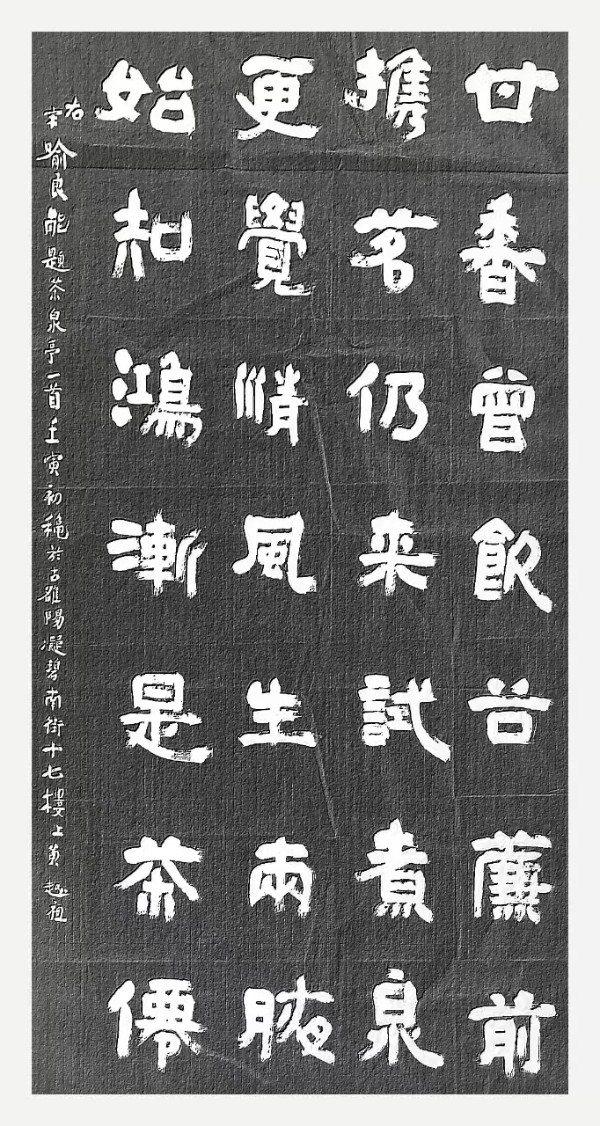 甘香曾飲谷薕前
携茗仍来試煮泉
更覺清風生兩腋
始知鴻漸是茶僊
右宋喻良能題茶泉亭一首壬寅初穐於古雒陽凝碧南街十七樓上黄